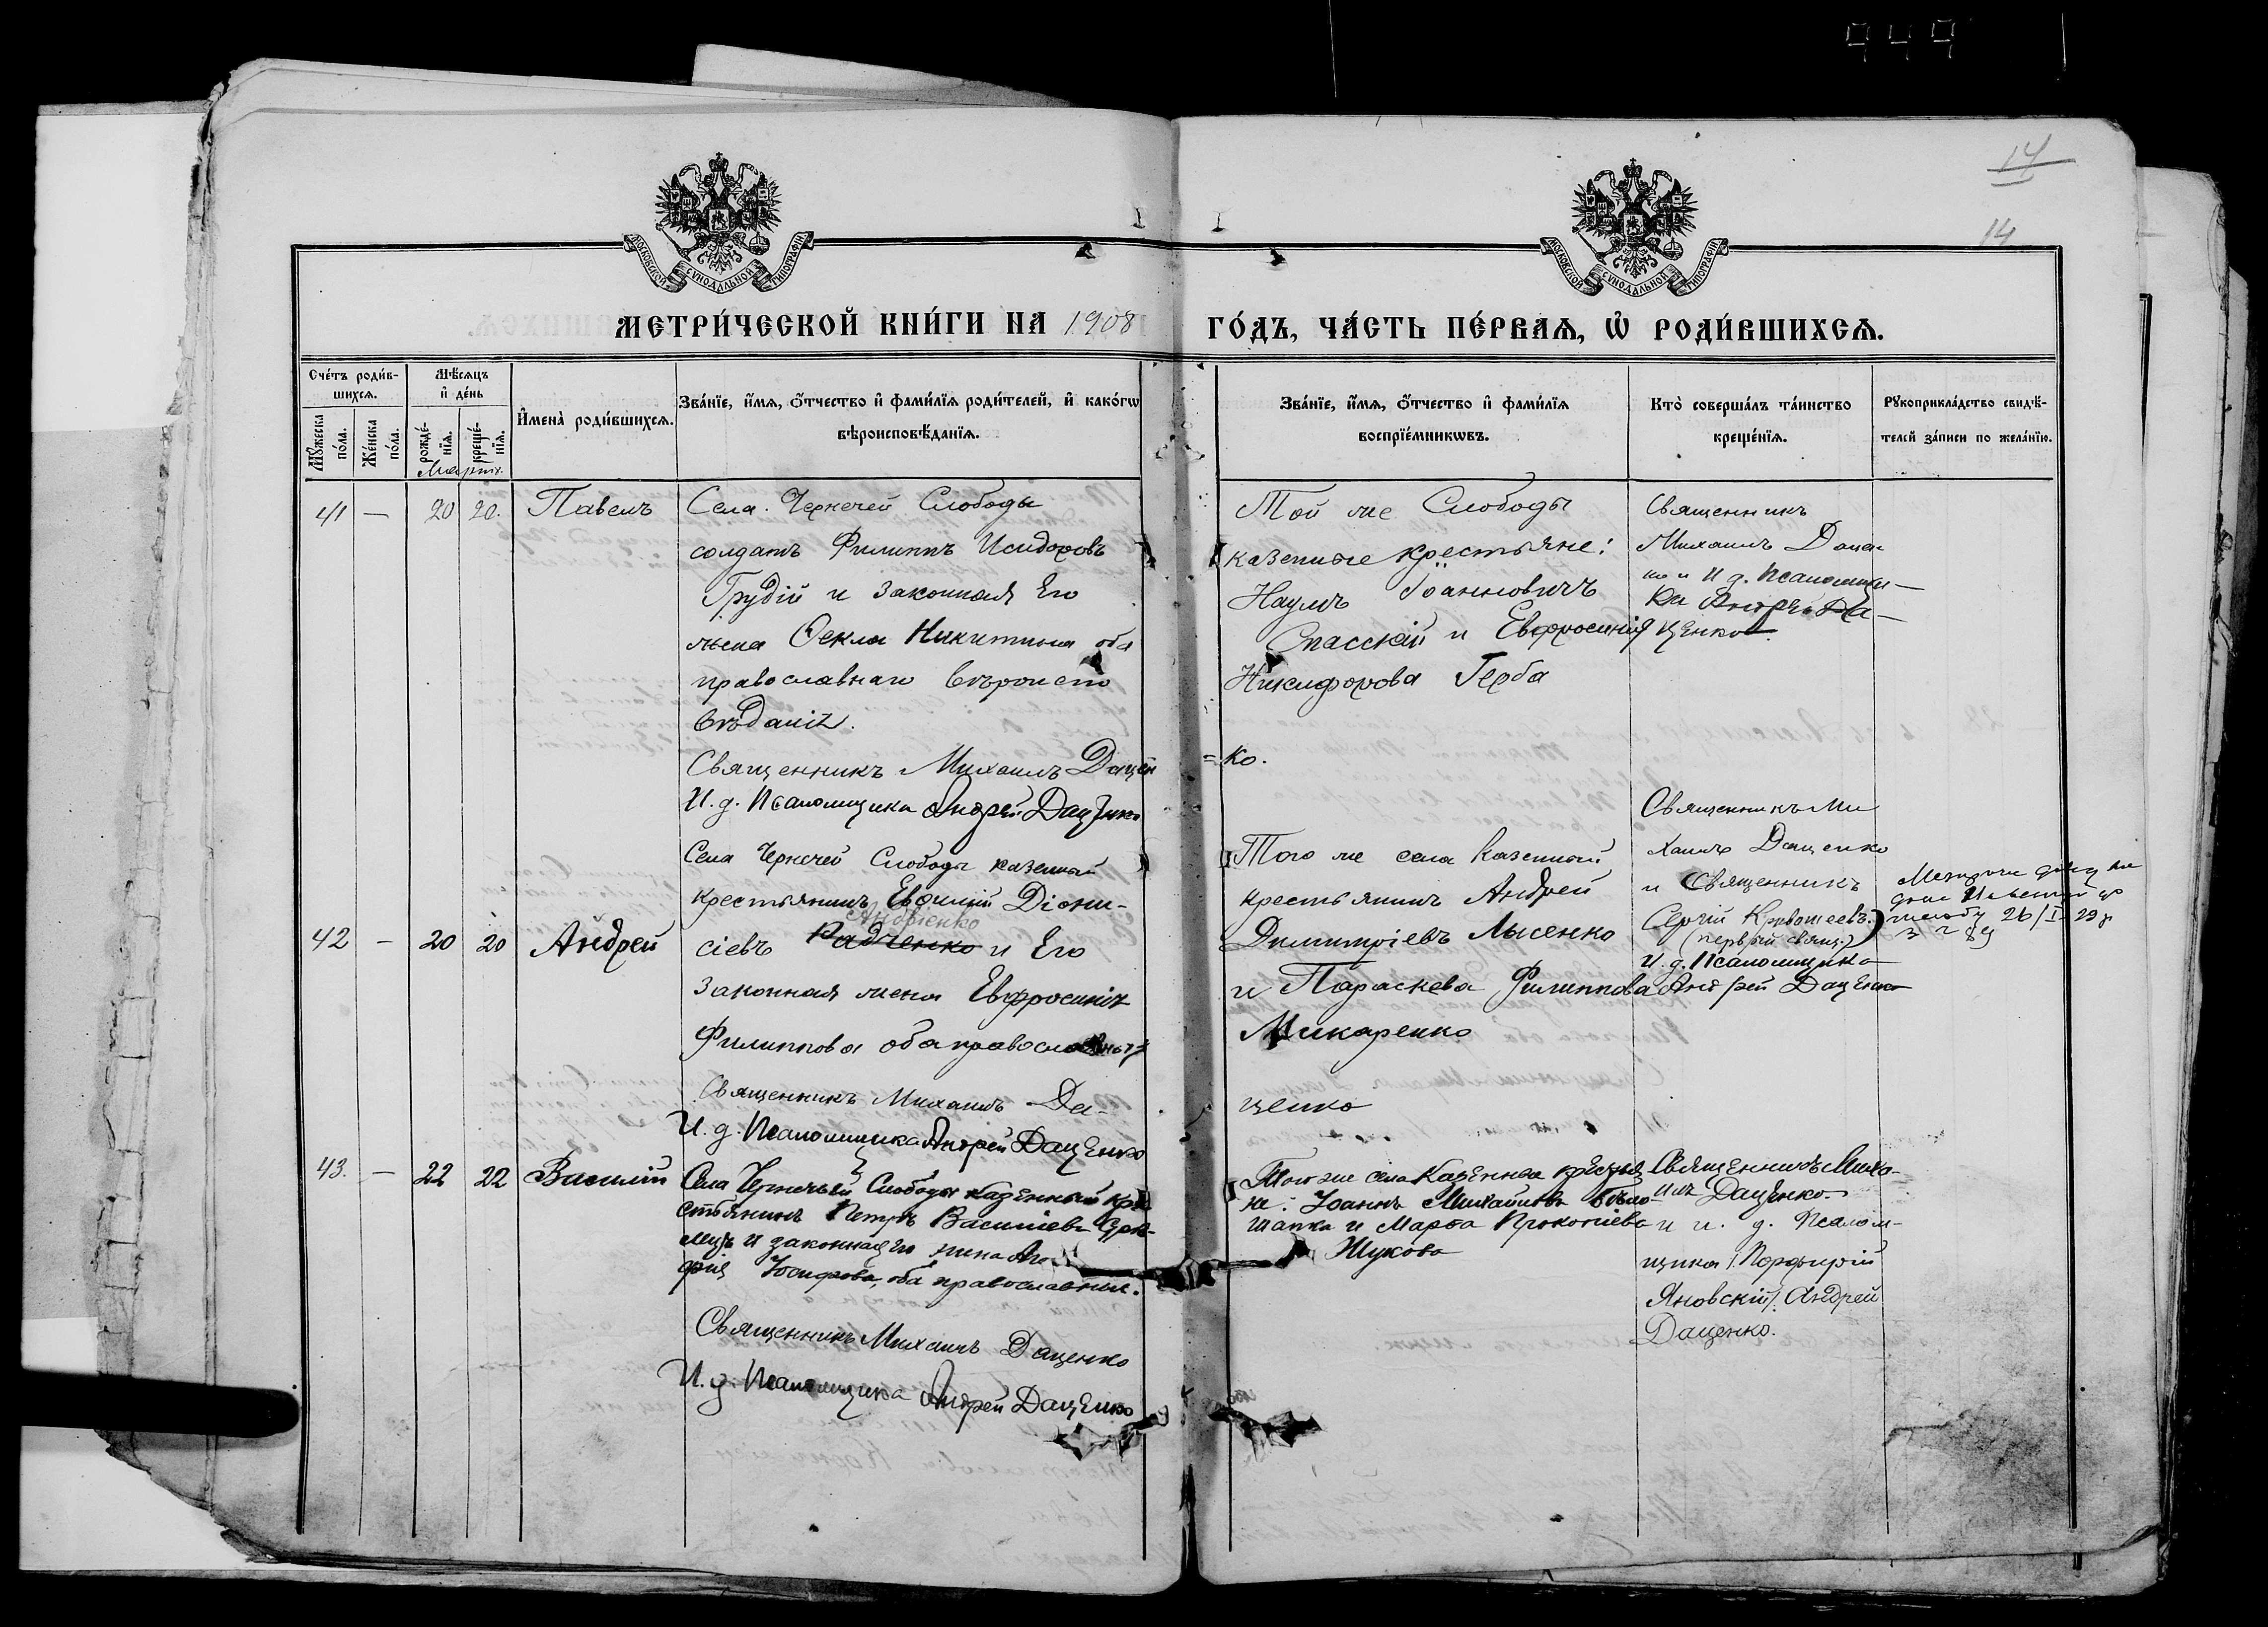 14
14
МОСКОВСКОЙ СѴНОДАЛЬНОЙ ТИПОГРАФІИ
МОСКОВСКОЙ СѴНОДАЛЬНОЙ ТИПОГРАФІИ
МЕТРИ́ЧЕСКОЙ КНИ́ГИ НА 1908
ГО́ДЪ, ЧА́СТЬ ПЕ́РВАѦ, Ѽ РОДИ́ВШИХСѦ.
Сче́тъ роди́в-
шихсѧ.
Мꙋ́жеска по́ла.
Же́нска по́ла.
Мѣ́сѧцъ
и҆ де́нь
рожде́-нїѧ.
креще́-нїѧ.
Мартъ.
И҆мена̀ роди́вшихсѧ.
Зва́нїе, и҆́мѧ, ѻ҆́тчество и҆ фами́лїѧ роди́телей, и҆ како́гѡ
вѣроисповѣ́данїѧ.
Зва́нїе, и҆́мѧ, ѻ҆́тчество и҆ фами́лїѧ
воспрїе́мникѡвъ.
Кто̀ соверша́лъ та́инство
креще́нїѧ.
Рꙋкоприкла́дство свидѣ́-
телей за́писи по жела́нїю.
41 — 20 20. Павелъ
Села Чернечей Слободы
солдатъ Филиппъ Исидоровъ
Грудій и законная его
жена Ѳекла Никитина оба
православнаго вѣроиспо
вѣданія.
Священникъ Михаилъ Дацен
И. д. Псаломщика Андрей Даценко
Той же Слободы
казенные крестьяне:
Наумъ Іоанновичъ
Спасскій и Евфросинія
Никифорова Герба
= ко.
Священникъ
Михаилъ Дацен
ко и И д. Псаломщи-
ка Андрей Да-
ценко.
42 — 20 20 Андрей
Села Чернечей Слободы казенный
крестьянинъ Евѳимій Діони-
Андріенко
сіевъ Радченко и его
законная жена Евфросинія
Филиппова оба православные
Священникъ Михаилъ Да-
И. д. Псаломщика Андрей Даценко
Того же села казенный
крестьянинъ Андрей
Димитріевъ Лысенко
и Параскева Филиппова
Макаренко
ценко
Священникъ Ми
хаилъ Даценко
и Священникъ
Сергій Кривошеевъ.
(первый свящ.)
И. д. Псаломщика
Андрей Даценко
26/I 29 р
43. — 22 22 Василій
Села Чернечьей Слободы казенный кре
стьянинъ Петръ Василіевъ
и законная его жена Ага
фія Іосифова, оба православные.
Священникъ Михаилъ Даценко
И. д. Псаломщика Андрей Даценко
Того же села казенные крестья
не: Іоаннъ Михайловъ Бѣло-
шапка и Марѳа Прокопіева
Жукова
Священникъ Миха-
илъ Даценко
и и. д. Псалом-
щика /Порфирій
Яновскій/. Андрей
Даценко.